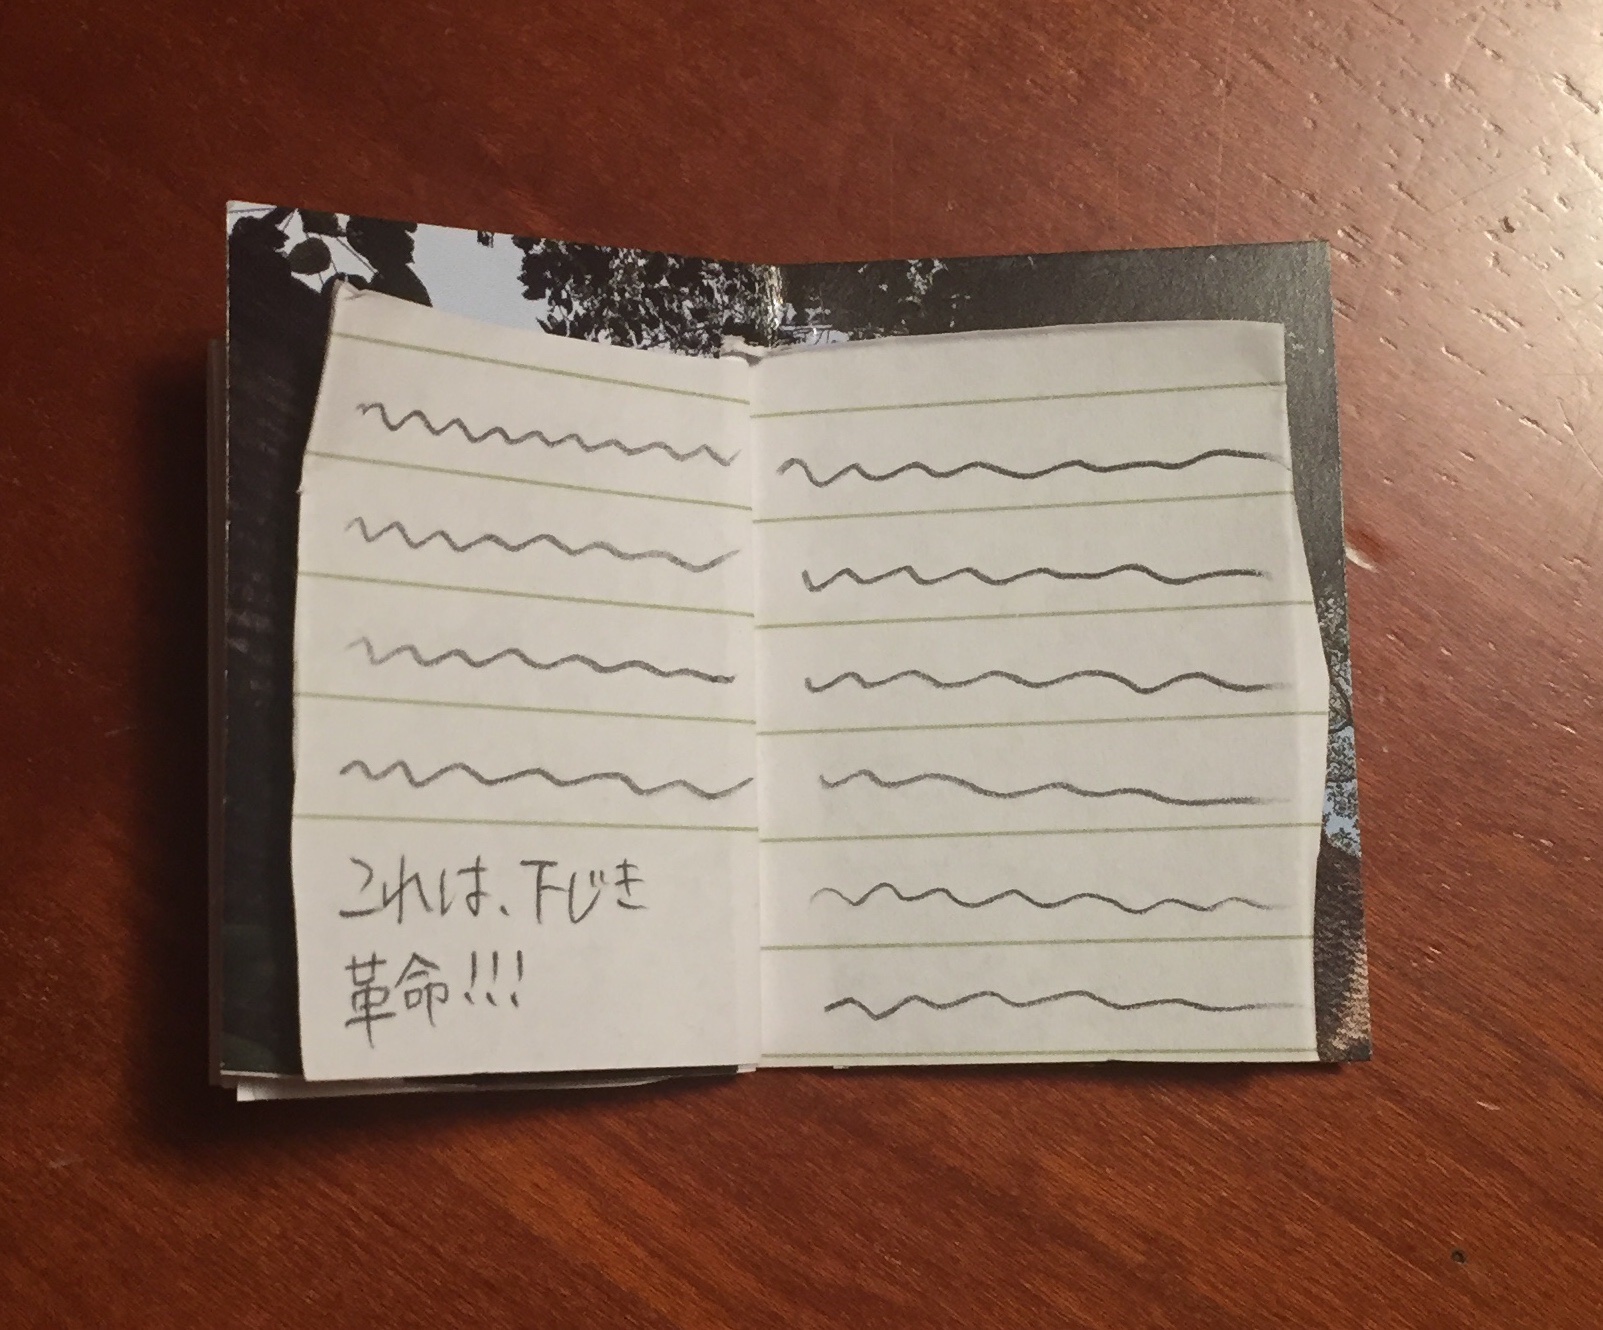 これは、下じき
革命!!!